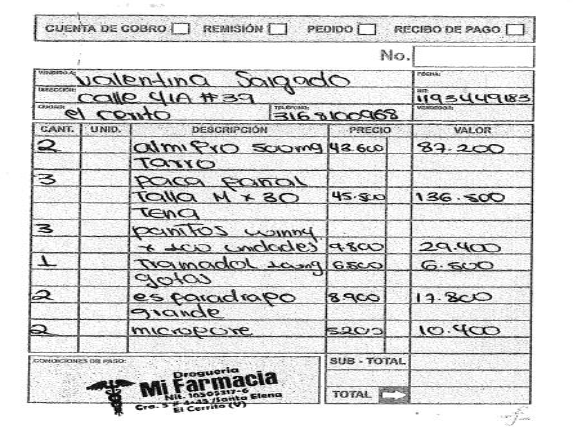 CUENTA DE COBRO REMISIÓN PEDIDO RECIBO DE PAGO
No.
Valentina Salgado FECHA:
DIRECCIÓN: calle 41A #39 NIT: 1193449183
CIUDAD: el cerrito TELÉFONO: 3168100968
CANT. UNID. DESCRIPCIÓN PRECIO VALOR
2 almipro 500mg 43.600 87.200
Tarro
3 paca pañal
Talla M x 30 45.500 136.500
Tena
3 panitos winny
x 100 unidades 9800 29.400
1 Tramadol 6500 6.500
gotas
2 esparadrapo 8900 17.800
grande
2 micropore 5200 10.400
CONDICIONES DE PAGO: SUB - TOTAL
Droguería
Mi Farmacia
TOTAL
Santa Elena
El Cerrito (V)